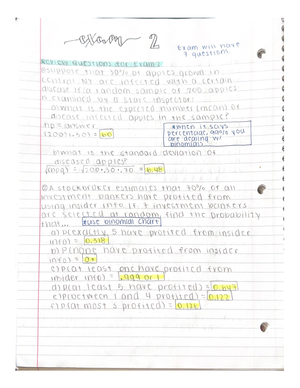 exam 2
Exam will have
7 questions
Review questions for Exam 2
① suppose that 30% of apples grown in
central NY are infected with a certain
disease. If a random sample of 200 apples
is examined by a state inspector:
a) what is the expected number (mean) of
disease infected apples in the sample?
np = answer
(200)(.30) = 60
*when it says
percentage, 
you
are dealing w/
binomials
b) what is the standard deviation of
diseased apples?
√200×.30×.70 = 6.48
② A stockbroker estimates that 70% of all
investment bankers have profited from
using insider info. If 7 investment bankers
are selected at random, find the probability
that...
*use binomial chart
a) P(exactly 5 have profited from insider
info) = 0.318
b) P(none have profited from insider
info) = 0+
c) P(at least one have profited from
insider info) = .999 or 1
d) P(at least 5 have profited) = 0.647
e) P(between 1 and 4 profited) =
f) P(at most 3 profited) = 0.126